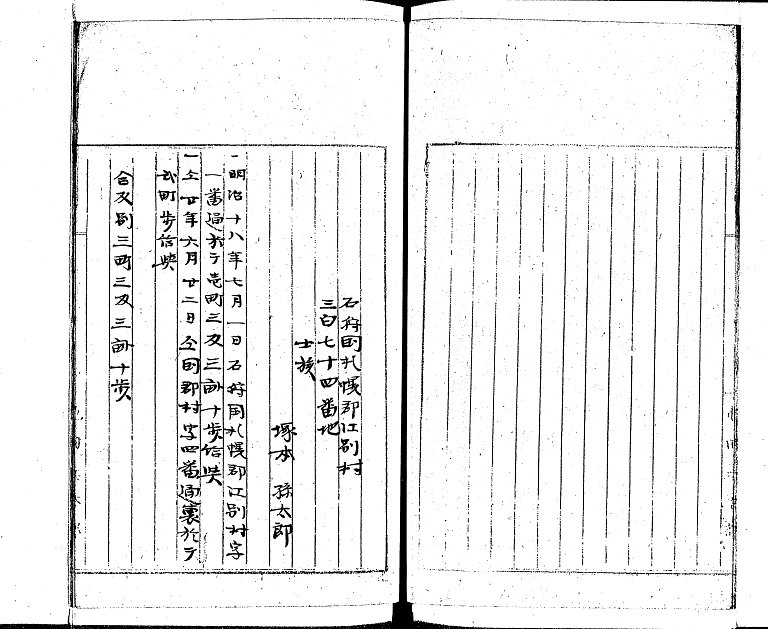 石狩国札幌郡江別村
三百七十四番地
士族
塚本 孫太郎
一明治十八年七月一日石狩国札幌郡江別村字
一番通於テ壱町三反三畝十歩
一仝廿年六月廿二日仝国郡村字四番通裏於テ
弐町歩
合反別三町三反三畝十歩